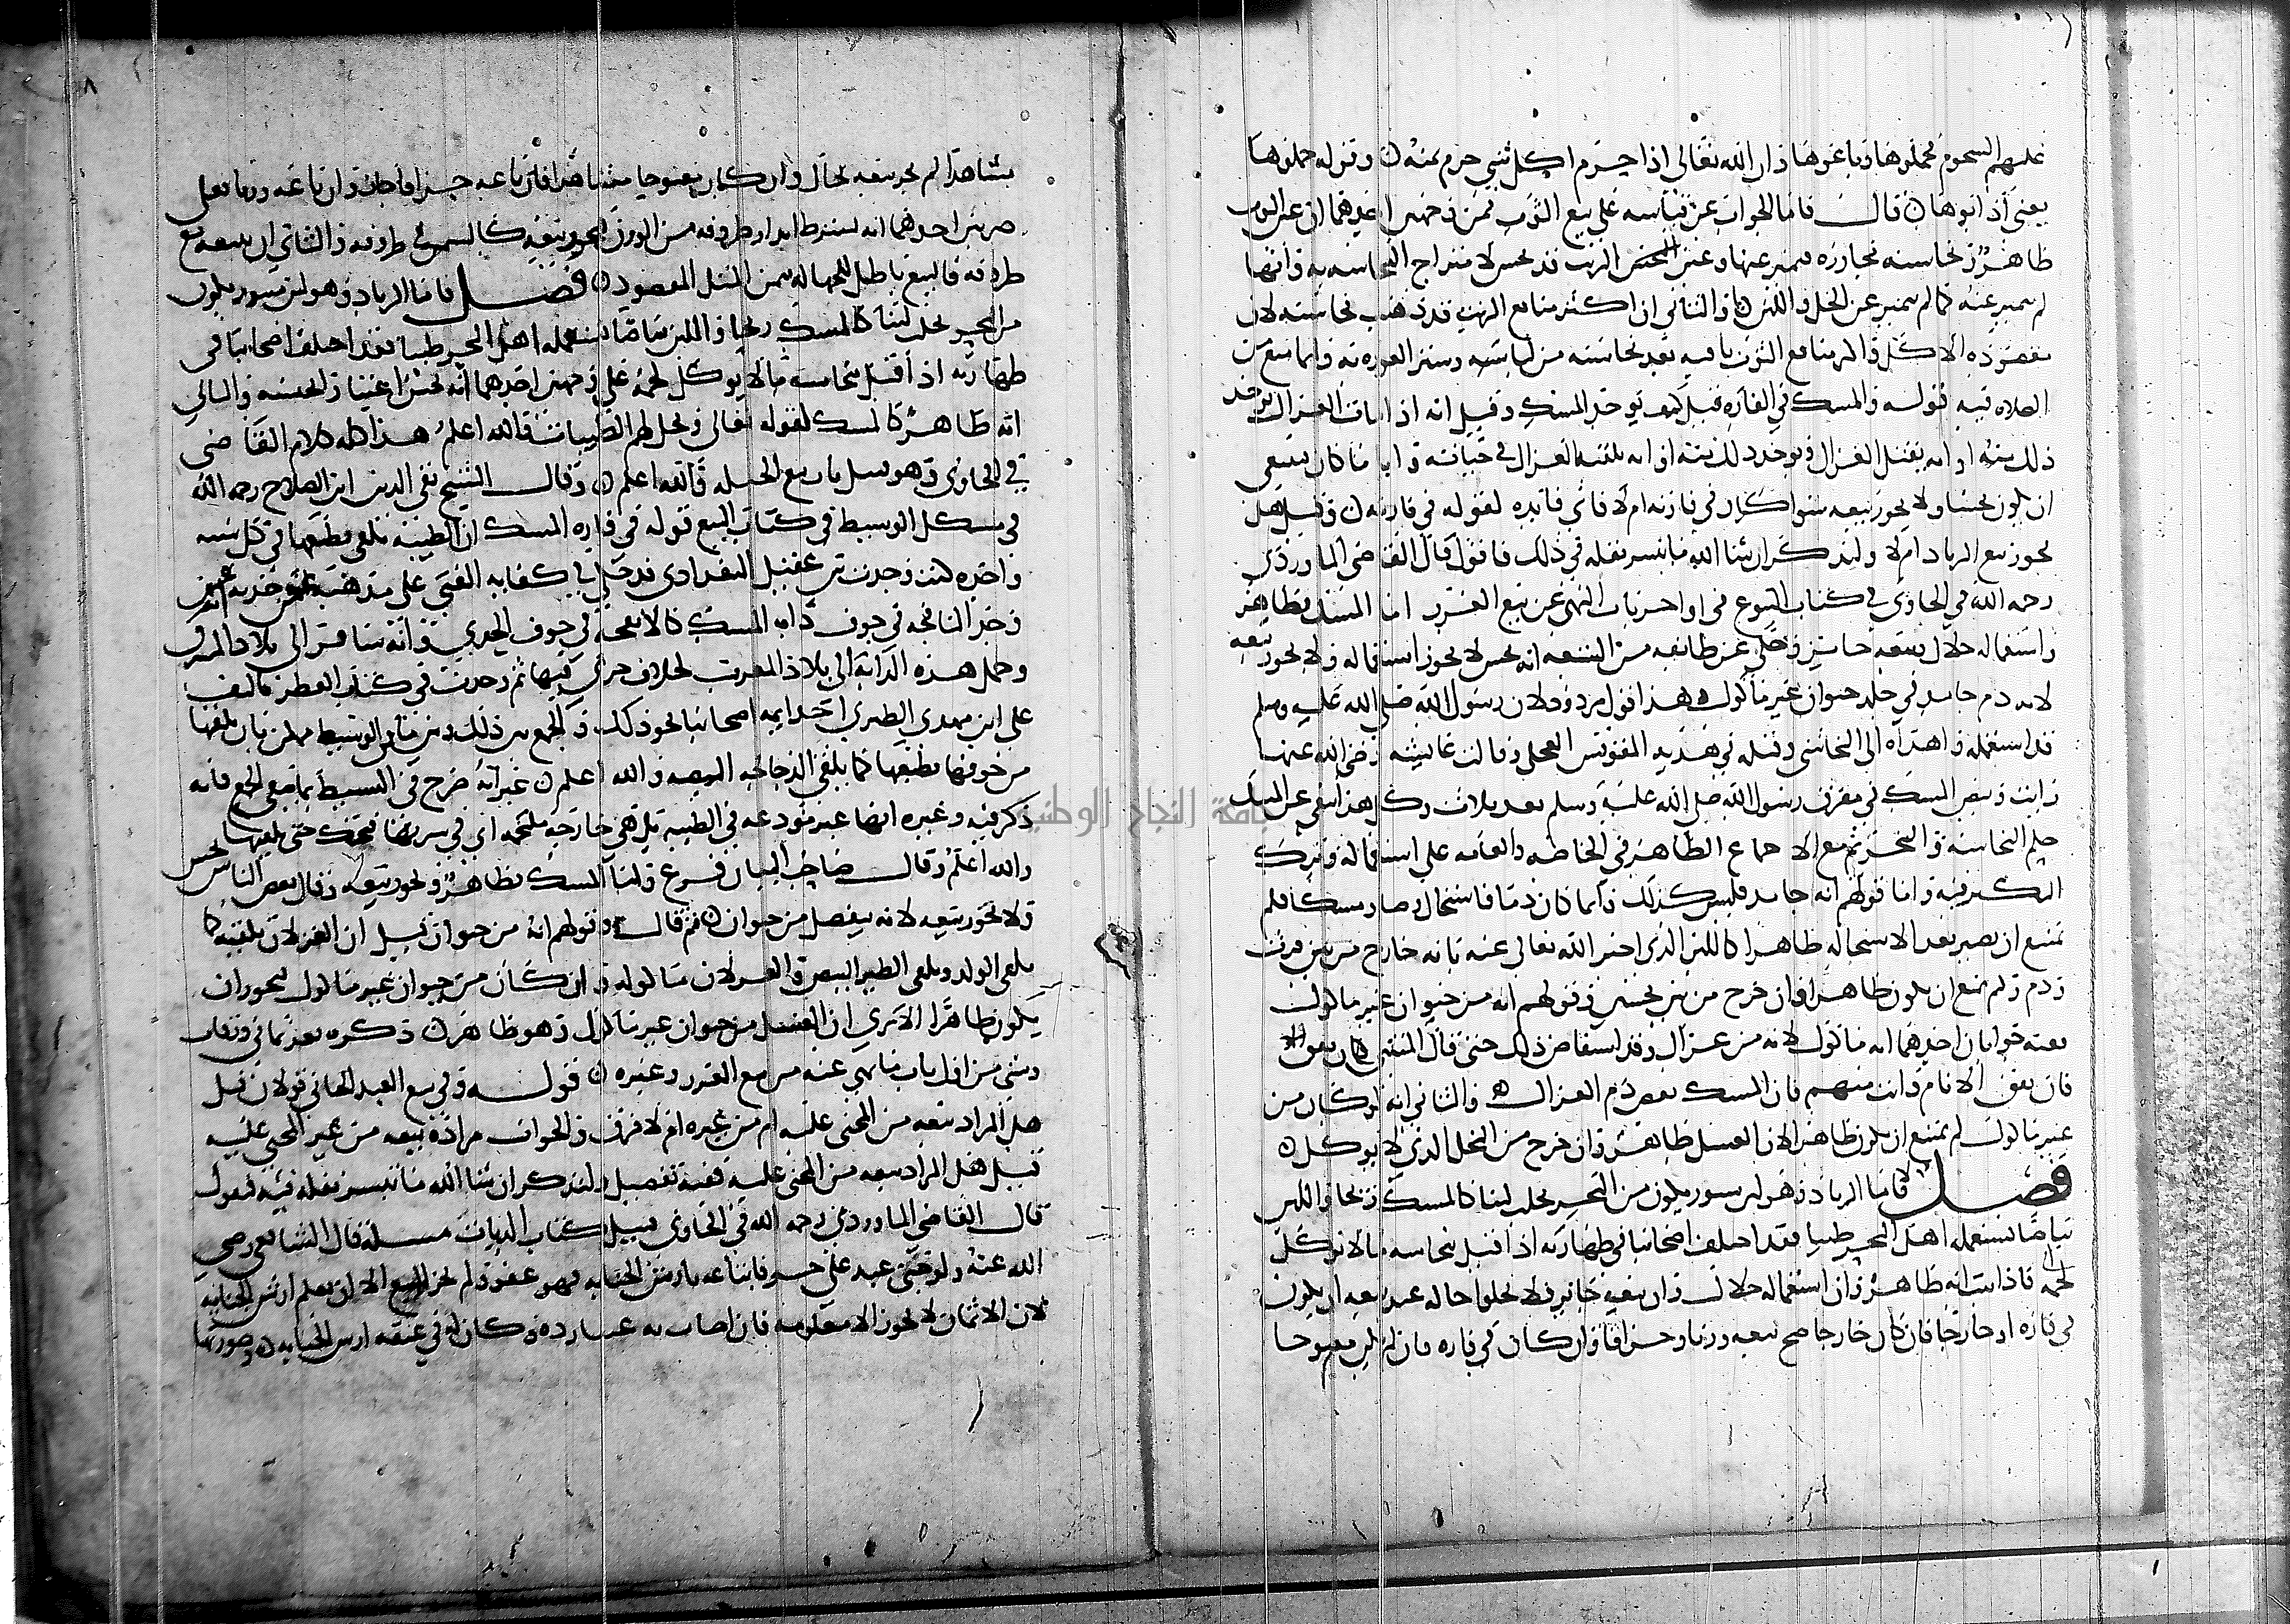 عليهم الشحوم فجملوها وباعوها وان الله تعالى اذا حرم اكل شي حرم ثمنه وقوله جملوها
يعني أذابوها قال فاما الجواب عن قياسه على بيع الثوب فمن وجهين احدهما ان عين الثوب
ظاهرة ونجاسته مجاورة فميز عنها وعين النجس الزيت قد نجس لامتزاج النجاسة به وانها
لم تميز عنه كما لم تميز عن الخل واللبن والثاني ان اكثر منافع الزيت قد ذهبت نجاسته لان
مقصوده الاكل والمر منافع الثوب باقيه بعد نجاسته من لباسه وستر العوره به وانما منعت
الصلاه فيه قوله والمسك في الفاره قيل كيف يوخذ المسك وقيل انه اذا مات الغزال يوخذ
ذلك منه او انه يقتل الغزال ويوخذ ذلك منه او انه يلقيه الغزال في حياته وايا ما كان ينبغي
ان يكون نجسا ولا يجوز بيعه سوا كان في فارته ام لا فاي فايده لقوله في فارته وقيل هل
يجوز بيع الزباد ام لا ولنذكر ان شا الله ما تيسر نقله في ذلك فاقول قال القاضي الماوردي
رحمه الله في الحاوي في كتاب البيوع في اواخر باب النهي عن بيع الغرر اما المسك فطاهر
واستعماله حلال وبيعه جايز وحكي عن طايفه من الشيعه انه نجس لا يجوز استعماله ولا يجوز بيعه
لانه دم جامد في جلد حيوان غير ماكول وهذا قول مردود لان رسول الله صلى الله عليه وسلم
قد استعمله واهداه الى النجاشي وقبله في هديه المقوقس العجل وقالت عائيشه رضي الله عنها
رايت وبيص المسك في مفرق رسول الله صلى الله عليه وسلم بعد ثلاث وكل هذا ينفي عن المسك
حكم النجاسه والتحريم مع الاجماع الظاهر في الخاصه والعامه على استعماله وترك
النكير فيه واما قولهم انه جامد فليس كذلك وانما كان دما فاستحال وصار مسكا فلم
يمتنع ان يصير بعد الاستحاله طاهرا كاللبن الذي اخبر الله تعالى عنه بانه خارج من بين فرث
ودم ولم يمنع ان يكون طاهرا وان خرج من بين نجسين وقولهم انه من حيوان غير ماكول
فعنه جوابان احدهما انه ماكول لانه من غزال وقد استفاض ذلك حتى قال المتنبي
فان تفق الانام وانت منهم فان المسك بعض دم الغزال والثاني انه لو كان من
غير ماكول لم يمتنع ان يكون طاهرا لان العسل طاهر وان خرج من النحل الذي لا يوكل
فصل فاما الزباد فهو لبن سنور يكون من البحر يحلب لبنا كالمسك ريحا واللبن
بياضا يستعمله اهل البحر طيبا فقد اختلف اصحابنا في طهارته اذا قيل بنجاسه ما لا يوكل
لحمه فاذا ثبت انه طاهر وان استعماله حلال وان بيعه جايز فلا يخلوا حاله عند بيعه ان يكون
في فاره او خارجا فان كان خارجا صح بيعه وزنا وجزافا وان كان في فاره فان لم يكن مفتوحا
مشاهدا لم يجز بيعه بحال وان كان مفتوحا مشاهدا فان باعه جزافا جاز وان باعه وزنا فعلى
ضربين احدهما انه يشترط انذار ظروفه من الوزن فيجوز بيعه كالسمن في ظروفه والثاني ان يبيعه مع
ظرفه فالبيع باطل للجهاله بثمن المثل المقصود فصل فاما الزباد وهو لبن سنور يكون
من البحر يحلب لبنا كالمسك ريحا واللبن بياضا يستعمله اهل البحر طيبا فقد اختلف اصحابنا في
طهارته اذا قيل بنجاسه ما لا يوكل لحمه على وجهين احدهما انه نجس اعتبارا لجنسه والثاني
انه طاهر كالمسك لقوله تعالى ويحل لهم الطيبات والله اعلم هذا كله كلام القاضي
في الحاوي وهو قبيل باب بيع الحبله والله اعلم وقال الشيخ تقي الدين ابن الصلاح رحمه الله
في مشكل الوسيط في كتاب البيع قوله في فاره المسك ان الظبيه تلقي قطعها في كل سنه
واحده لكن وجدت بن عقيل البغدادي قد حكى في كفايه المفتي على مذهب
وجد النافجه في جوف دابه المسك كالانفحه في جوف الجدي وانه سافر الى بلاد المشرق
وحمل هذه الدابه الى بلاد المغرب لخلاف جرى فيها ثم وجدت في كتاب العطر تاليف
علي ابن مهدي الطبري احد ايمه اصحابنا نحو ذلك والجمع بين ذلك وبين ما في الوسيط ممكن بان تلقيها
من جوفها بطبعها كما تلقي الدجاجه البيضه والله اعلم غير انه صرح في البسيط بما ينفي الجمع فانه
ذكر فيه وغيره انها غير مودعه في الظبيه بل هي خارجه ملتحمه اي في سرتها فتحتك حتى تلقيها
والله اعلم وقال صاحب البيان فرع وليا المسك بطاهر ويجوز بيعه وقال بعض الناس نجس
ولا يجوز بيعه لانه ينفصل من حيوان ثم قال وقولهم انه من حيوان قيل ان الغزلان تلقيه كما
يلقى الولد ويلقى الطير البيض والغزلان ماكوله وان كان من حيوان غير ماكول فيجوز ان
يكون طاهرا الا ترى ان العسل من حيوان غير ماكول وهو طاهر ذكره بعد ثماني ورقات
وشي من اول باب ما نهي عنه من بيع الغرر وغيره قوله وفي بيع العبد الجاني قولان قيل
هل المراد بيعه من المجني عليه ام من غيره ام لا فرق والجواب مراده بيعه من غير المجني عليه
قيل هل المراد بيعه من المجني عليه ففيه تفصيل ولنذكر ان شا الله ما تيسر نقله فيه فنقول
قال القاضي الماوردي رحمه الله في الحاوي قبيل كتاب الديات مسله قال الشافعي رضي
الله عنه ولو جنى عبد على حر فابتاعه بارش الجنايه فهو عفو ولم يجز البيع الا ان يعلم ارش الجنايه
لان الاثمان لا تجوز الا معلومه فان اصاب به عيبا رده وكان له في عنقه ارش الجنايه وصورتها